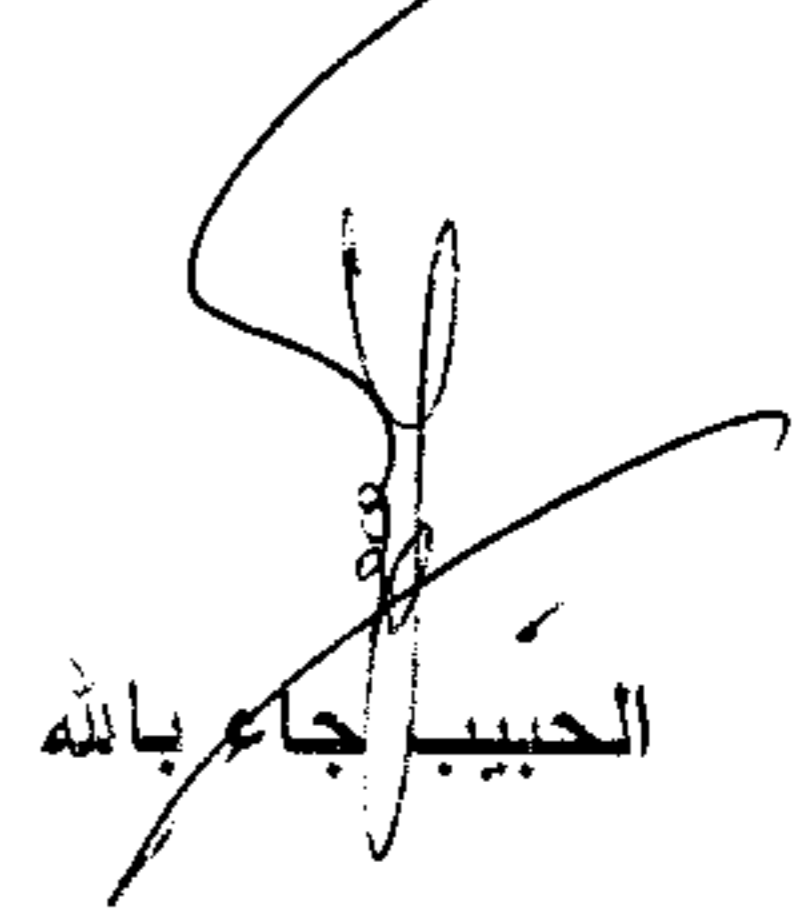 الحبيب جاء بالله